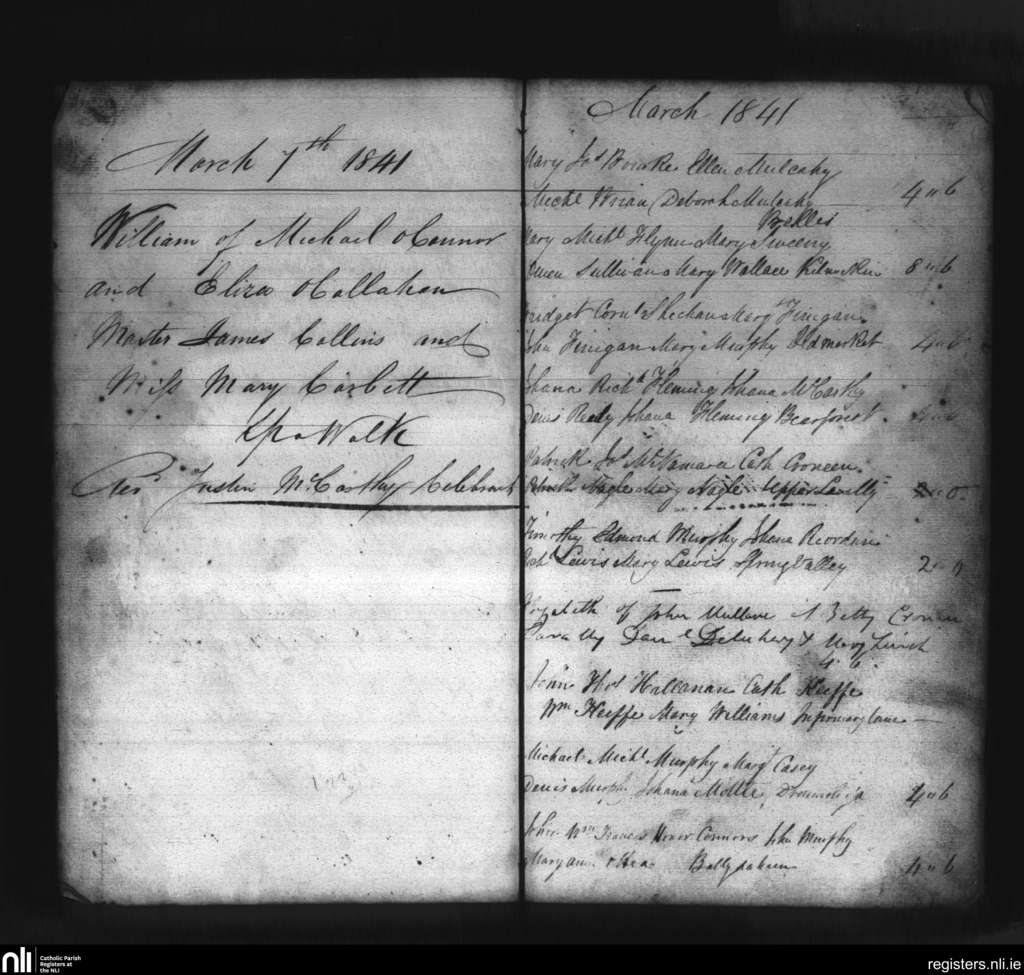 March 7th 1841
William of Michael OConnor
and Eliza OCallahan
Master James Collins and
Miss Mary Corbett
Walk
Revd Justin McCarthy Celebrant
March 1841
Mary Jas Bourke Ellen Mulcahy
Michl Brian Deborah Mulcahy 4 " 6
Mary Michl Flynn Mary Sweeny
Owen Sullivan Mary Wallace 8 " 6
Bridget Corns Shechan Mary Finigan
John Finigan Mary Murphy Oldmarket 4 " 6
Johana Richd Fleming Johana McCarthy
Denis Ready Johana Fleming Bearforest
Patrick Js McNamara Cath Croneen
Patrick Nagle Mary Nagle Upper Lavally
Timothy Edmond Murphy Johana Reordan
Lewis Mary Lewis Spring Valley 2
Elizabeth of John Mullane & Betty Cronin
Danl & Mary Linch
4 6
John Thos Hallanan Cath Keeffe
Wm Keeffe Mary Williams Infirmary Lane
Michael Michl Murphy Margt Casey
Denis Murphy Johana 4 " 6
Wm Honor Connors John Murphy
Maryann OShea Ballydaheen 4 " 6
nli
Catholic Parish
Registers at
the NLI
registers.nli.ie